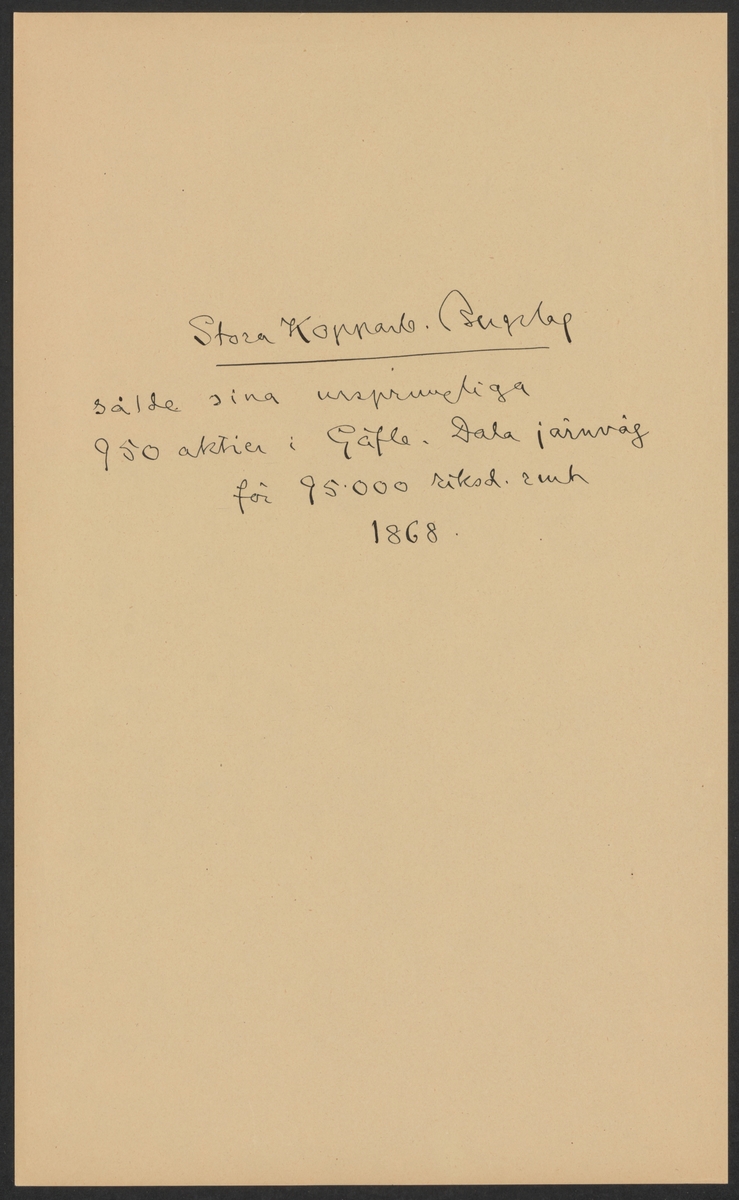 Stora Kopparb. Bergslag
sålde sina ursprungliga
950 aktier i Gäfle. Dala järnväg
för 95.000 riksd. rmt
1868.